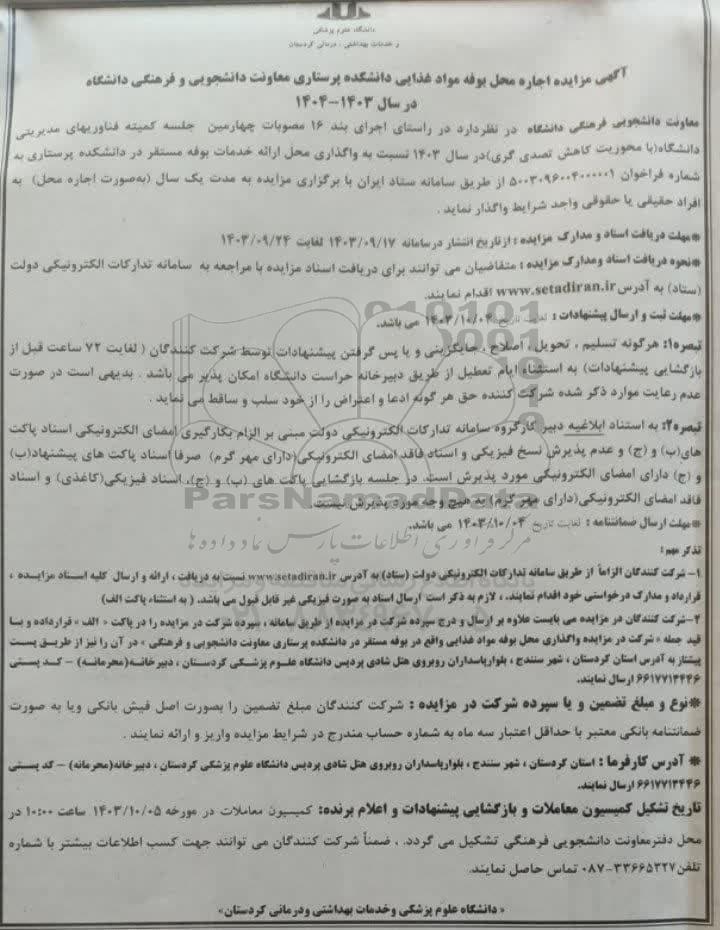 دانشگاه علوم پزشکی
و خدمات بهداشتی ، درمانی کردستان
آگهی مزایده اجاره محل بوفه مواد غذایی دانشکده پرستاری معاونت دانشجویی و فرهنگی دانشگاه
در سال ۱۴۰۳-۱۴۰۴
معاونت دانشجویی فرهنگی دانشگاه در نظردارد در راستای اجرای بند ۱۶ مصوبات چهارمین جلسه کمیته فناوریهای مدیریتی
دانشگاه(با محوریت کاهش تصدی گری)در سال ۱۴۰۳ نسبت به واگذاری محل ارائه خدمات بوفه مستقر در دانشکده پرستاری به
شماره فراخوان ۵۰۰۳۰۹۶۰۰۴۰۰۰۰۰۱ از طریق سامانه ستاد ایران با برگزاری مزایده به مدت یک سال (به‌صورت اجاره محل) به
افراد حقیقی یا حقوقی واجد شرایط واگذار نماید .
*مهلت دریافت اسناد و مدارک مزایده : ازتاریخ انتشار درسامانه ۱۴۰۳/۰۹/۱۷ لغایت ۱۴۰۳/۰۹/۲۴
*نحوه دریافت اسناد ومدارک مزایده : متقاضیان می توانند برای دریافت اسناد مزایده با مراجعه به سامانه تدارکات الکترونیکی دولت
(ستاد) به آدرس www.setadiran.ir اقدام نمایند.
*مهلت ثبت و ارسال پیشنهادات : لغایت تاریخ ۱۴۰۳/۱۰/۰۴ می باشد.
تبصره۱: هرگونه تسلیم ، تحویل ، اصلاح ، جایگزینی و یا پس گرفتن پیشنهادات توسط شرکت کنندگان ( لغایت ۷۲ ساعت قبل از
بازگشایی پیشنهادات) به استثناء ایام تعطیل از طریق دبیرخانه حراست دانشگاه امکان پذیر می باشد . بدیهی است در صورت
عدم رعایت موارد ذکر شده شرکت کننده حق هر گونه ادعا و اعتراض را از خود سلب و ساقط می نماید .
تبصره۲: به استناد ابلاغیه دبیر کارگروه سامانه تدارکات الکترونیکی دولت مبنی بر الزام بکارگیری امضای الکترونیکی اسناد پاکت
های(ب) و (ج) و عدم پذیرش نسخ فیزیکی و اسناد فاقد امضای الکترونیکی(دارای مهر گرم) صرفا اسناد پاکت های پیشنهاد(ب)
و (ج) دارای امضای الکترونیکی مورد پذیرش است. در جلسه بازگشایی پاکت های (ب) و (ج)، اسناد فیزیکی(کاغذی) و اسناد
فاقد امضای الکترونیکی(دارای مهر گرم) به هیچ وجه مورد پذیرش نیست.
*مهلت ارسال ضمانتنامه : لغایت تاریخ ۱۴۰۳/۱۰/۰۴ می باشد.
تذکر مهم :
۱- شرکت کنندگان الزاماً از طریق سامانه تدارکات الکترونیکی دولت (ستاد) به آدرس www.setadiran.ir نسبت به دریافت ، ارائه و ارسال کلیه اسناد مزایده ،
قرارداد و مدارک درخواستی خود اقدام نمایند. ، لازم به ذکر است ارسال اسناد به صورت فیزیکی غیر قابل قبول می باشد. ( به استثناء پاکت الف)
۲-شرکت کنندگان در مزایده می بایست علاوه بر ارسال و درج سپرده شرکت در مزایده از طریق سامانه ، سپرده شرکت در مزایده را در پاکت « الف » قرارداده و بـا
قید جمله « شرکت در مزایده واگذاری محل بوفه مواد غذایی واقع در بوفه مستقر در دانشکده پرستاری معاونت دانشجویی و فرهنگی » در آن را نیز از طریق پست
پیشتاز به آدرس استان کردستان ، شهر سنندج ، بلوارپاسداران روبروی هتل شادی پردیس دانشگاه علوم پزشکی کردستان ، دبیرخانه(محرمانه) - کد پستی
۶۶۱۷۷۱۳۴۴۶ ارسال نمایند.
*نوع و مبلغ تضمین و یا سپرده شرکت در مزایده : شرکت کنندگان مبلغ تضمین را بصورت اصل فیش بانکی ویا به صورت
ضمانتنامه بانکی معتبر با حداقل اعتبار سه ماه به شماره حساب مندرج در شرایط مزایده واریز و ارائه نمایند .
* آدرس کارفرما : استان کردستان ، شهر سنندج ، بلوارپاسداران روبروی هتل شادی پردیس دانشگاه علوم پزشکی کردستان ، دبیرخانه(محرمانه) - کد پستی
۶۶۱۷۷۱۳۴۴۶ ارسال نمایند.
تاریخ تشکیل کمیسیون معاملات و بازگشایی پیشنهادات و اعلام برنده: کمیسیون معاملات در مورخه ۱۴۰۳/۱۰/۰۵ ساعت ۱۰:۰۰ در
محل دفترمعاونت دانشجویی فرهنگی تشکیل می گردد. ، ضمناً شرکت کنندگان می توانند جهت کسب اطلاعات بیشتر با شماره
تلفن ۳۳۶۶۵۳۲۷-۰۸۷ تماس حاصل نمایند.
« دانشگاه علوم پزشکی وخدمات بهداشتی ودرمانی کردستان»
ParsNamadData
مرکز فرآوری اطلاعات پارس نماد داده ها